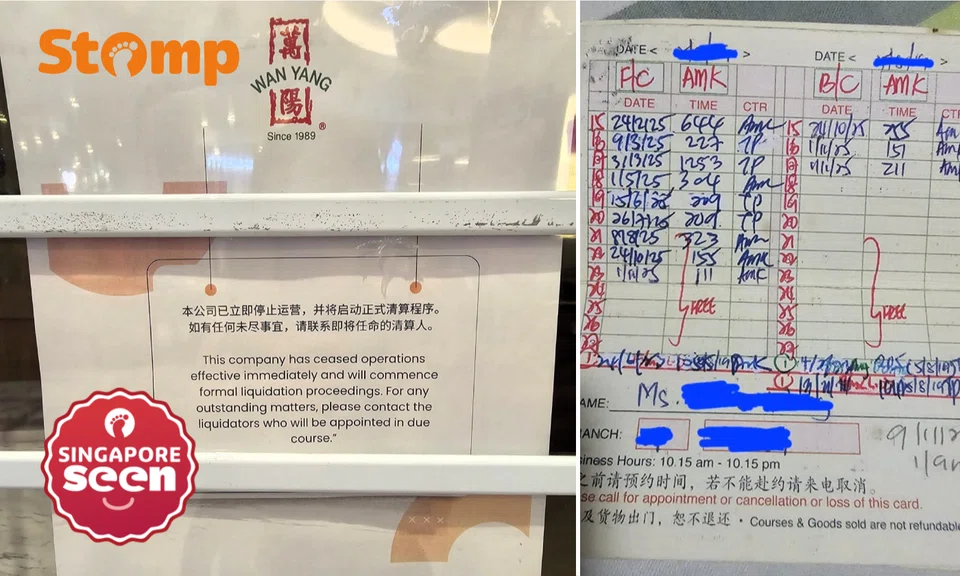 Stomp
萬
WAN YANG
陽
®
Since 1989
本公司已立即停止运营，并将启动正式清算程序。
如有任何未尽事宜，请联系即将任命的清算人。
This company has ceased operations
effective immediately and will commence
formal liquidation proceedings. For any
outstanding matters, please contact the
liquidators who will be appointed in due
course."
SINGAPORE
seen
DATE < > DATE < >
F/C AMK B/C AMK
DATE TIME CTR DATE TIME CTR
15 24/2/25 644 Amk 15 24/10/25 255 Am
16 9/3/25 227 TP 16 1/11/25 151 Am
17 31/3/25 1253 TP 17 211 Am
18 1/5/25 304 Am 18
19 15/6/25 209 TP 19
20 26/7/25 209 TP 20
21 8/8/25 323 Am 21
22 24/10/25 155 Amk 22
23 1/11/25 111 Amk 23
24 24
25 FREE 25 FREE
26 26
NAME: Ms.
BRANCH:
9/11/2
siness Hours: 10.15 am - 10.15 pm
之前请预约时间，若不能赴约请来电取消。
se call for appointment or cancellation or loss of this card.
及货物出门，恕不退还 • Courses & Goods sold are not refundable